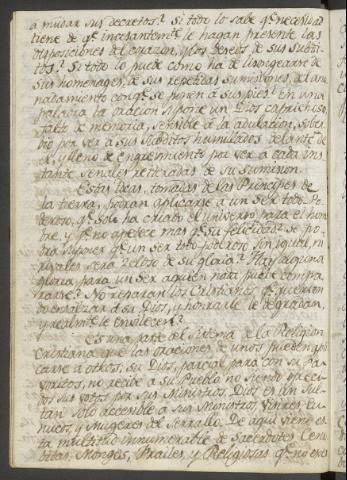 a mudar sus decretos? Si todo lo sabe qe necesidad
tiene de qe incesantemte le hagan presente las
disposiciones del corazon, y los deseos de sus subdi-
tos? Si todo lo puede como ha de lisongearse de
sus homenages, de sus repetidas sumisiones, del ano-
nadamiento con qe se ponen á sus pies? en una
palabra la oracion supone un Dios caprichoso,
falto de memoria, sensible á la adulacion, sober-
bio por ver á sus subditos humillados delante de
él, y lleno de engreimiento por ver á cada ins-
tante señales reiteradas de su sumision.
Estas ideas, tomadas de los Principes de
la tierra, podran aplicarse á un ser todo Po-
deroso, qe solo ha criado el universo para el hom-
bre, y qe no apetece mas qe su felicidad? se po-
drá suponer qe un ser todo poderoso sin igual, ni
rivales, sea zeloso de su gloria? Hay alguna
gloria para un ser á quien nada puede compa-
rarse? No reparan los Cristianos qe queriendo
exaltar á su Dios, y honrarle le degradan,
y realmte le envilecen?
Es una parte del sistema de la Religion
Cristiana que las oraciones de unos pueden apli-
carse á otros; su Dios, parcial para con sus fa-
voritos, no recibe á su Pueblo no siendo ofreci-
dos sus votos por sus Ministros. Dios es un Sul-
tan solo accesible á sus Ministros, Visires, Eu-
nucos, y Mugeres del Serrallo. De aqui viene es-
ta multitud innumerable de Sacerdotes, Ceno-
bitas, Monges, Frailes, y Religiosas qe no